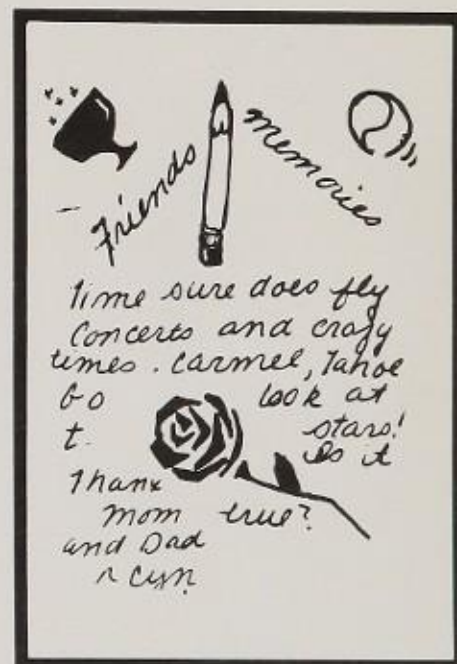 Friends
memories
Time sure does fly
Concerts and crazy
times. Carmel, Tahoe
Go look at
t. stars!
Is it
Thanx
Mom true?
and Dad
Cyn